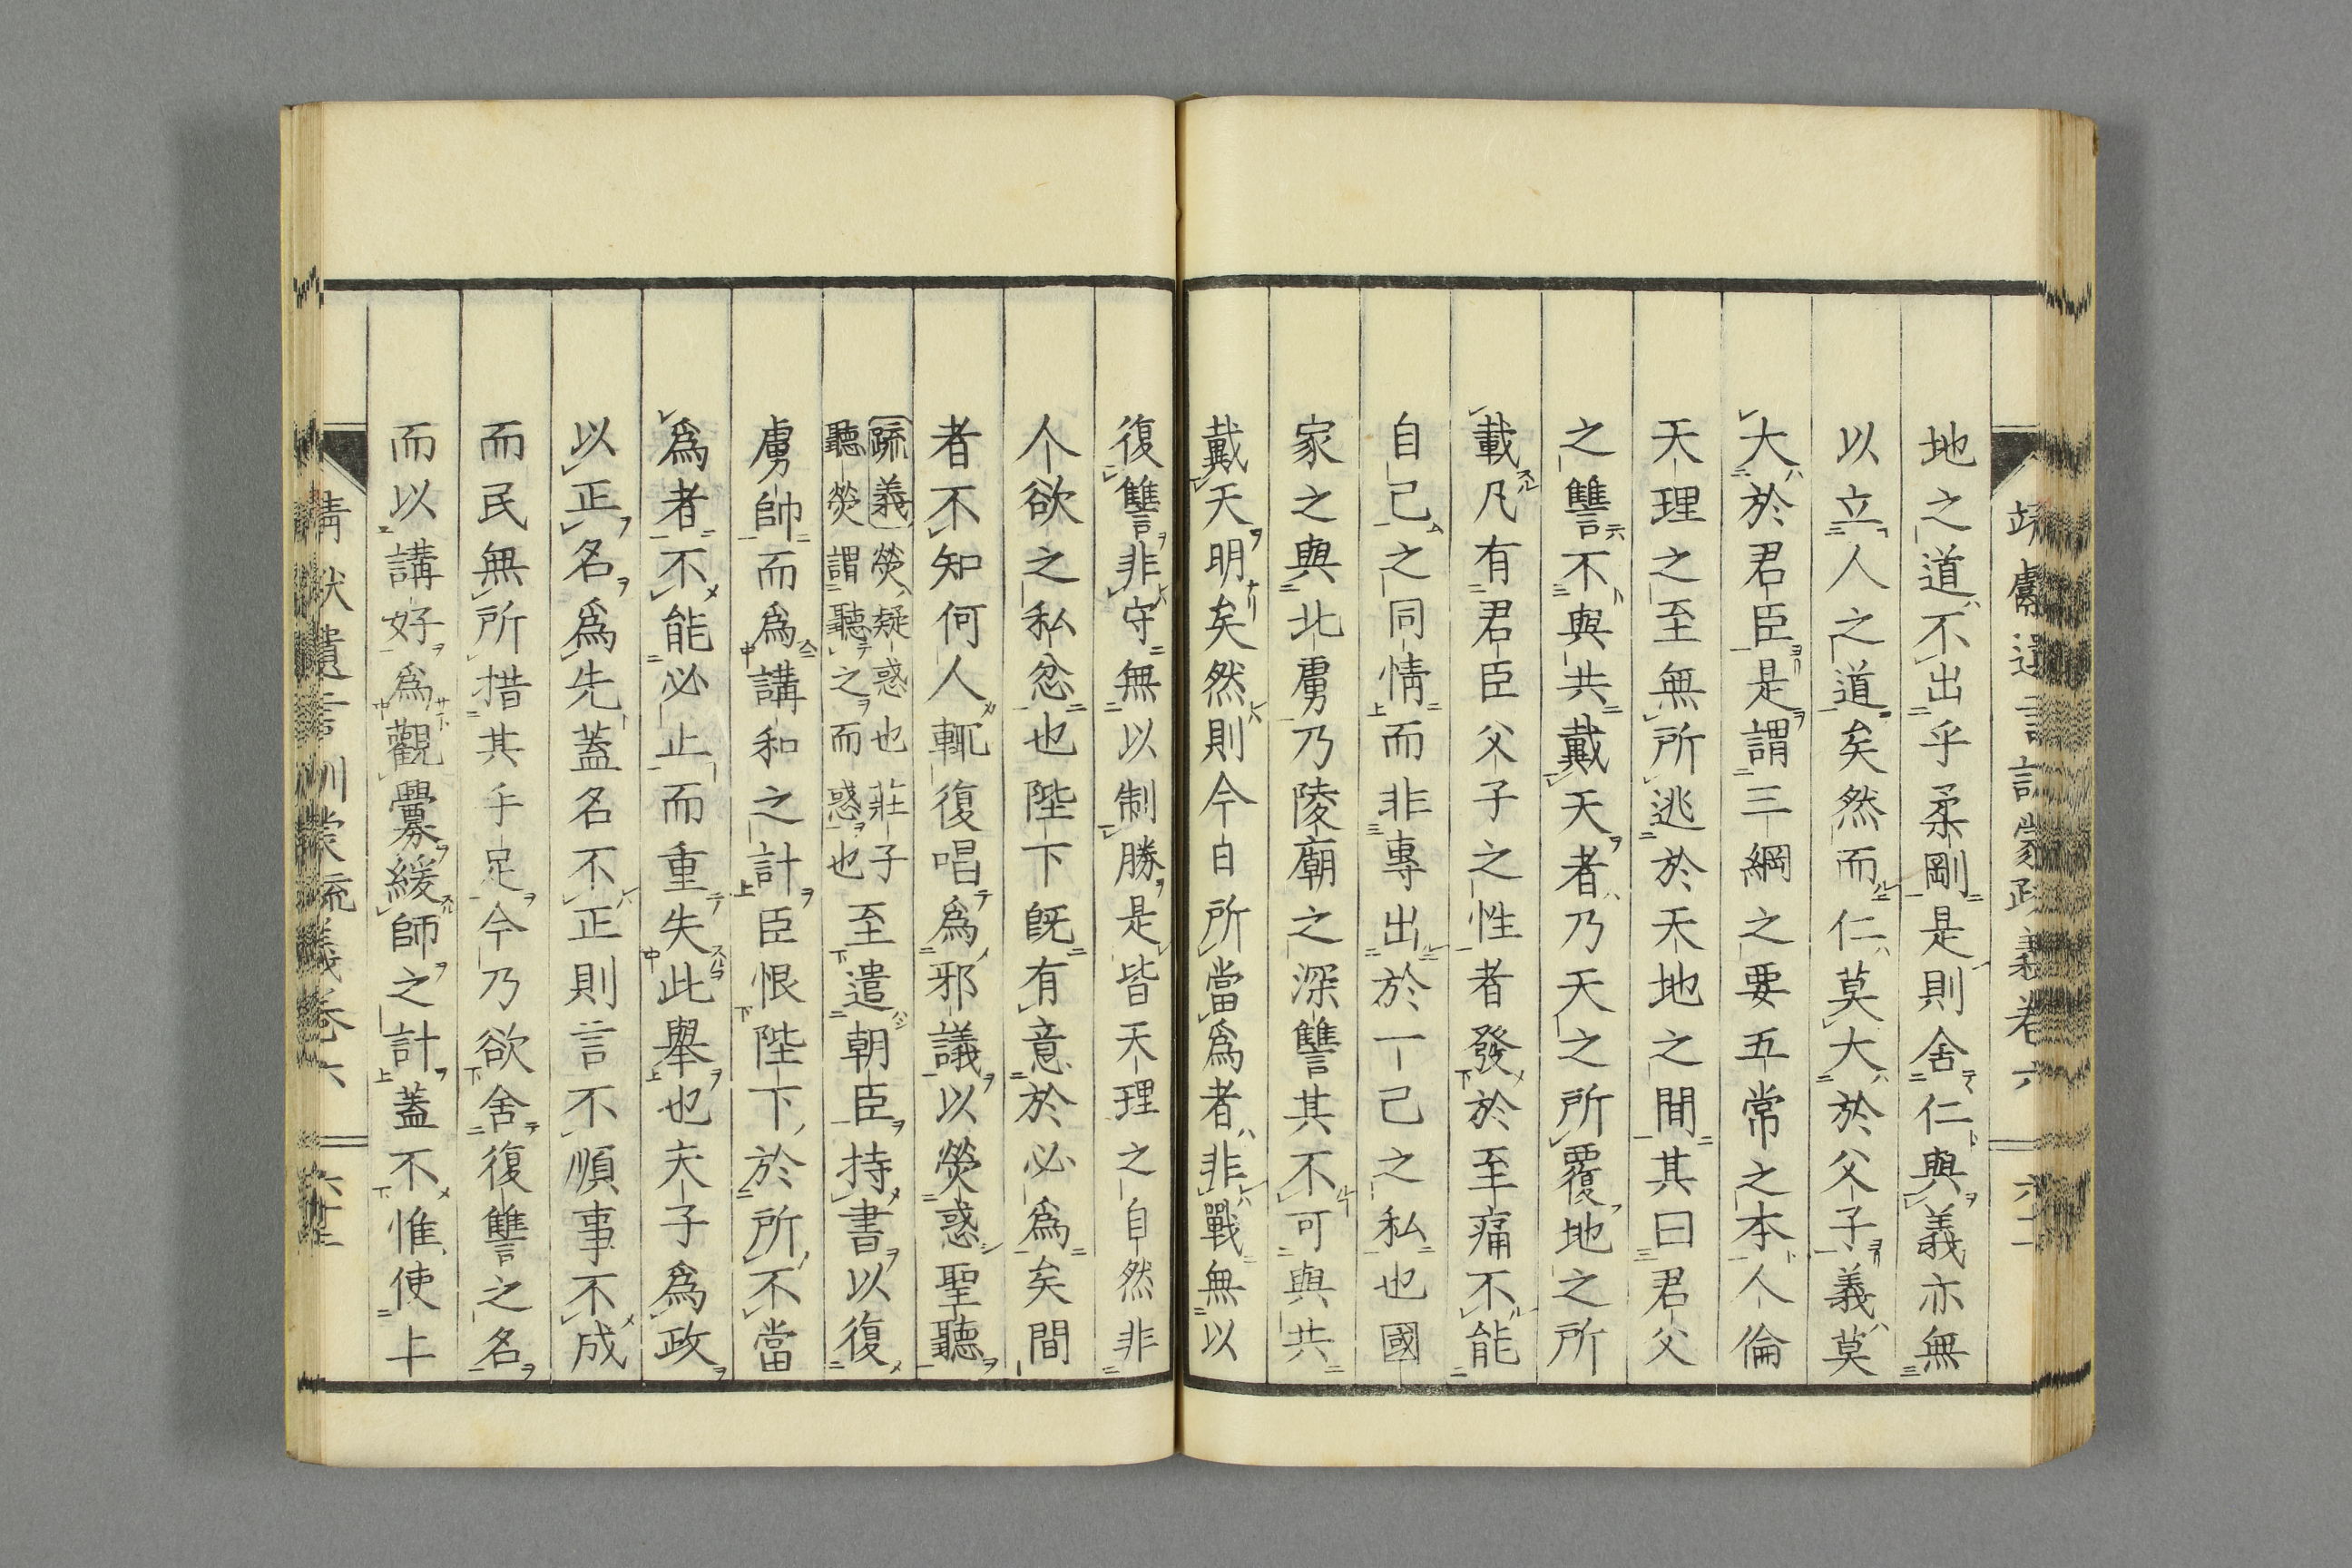 地之道不出乎柔剛是則舍仁與義亦無
以立人之道矣然而仁莫大於父子義莫
大於君臣是謂三綱之要五常之本人倫
天理之至無所逃於天地之間其曰君父
之讐不與共戴天者乃天之所覆地之所
載凡有君臣父子之性者發於至痛不能
自己之同情而非專出於一己之私也國
家之與北虜乃陵廟之深讐其不可與共
戴天明矣然則今日所當爲者非戰無以
復讐非守無以制勝是皆天理之自然非
人欲之私忿也陛下既有意於必爲矣間
者不知何人輒復唱爲邪議以熒惑聖聽
疏義熒疑惑也莊子
聽熒謂聽之而惑也
至遣朝臣持書以復
虜帥而爲講和之計臣恨陛下於所不當
爲者不能必止而重失此擧也夫子爲政
以正名爲先蓋名不正則言不順事不成
而民無所措其手足今乃欲舍復讐之名
而以講好爲觀釁緩師之計蓋不惟使上
靖獻遺言訓蒙疏義卷六